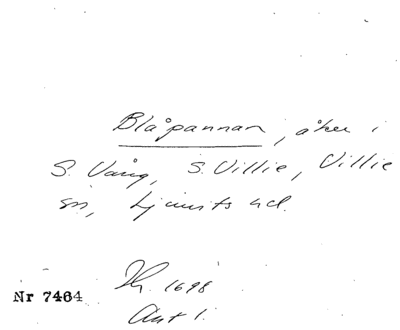 Blåpannan, åker i
S. Vång, S. Villie, Villie
sn, Ljunits hd.
1698
Nr 7464
Akt 1.